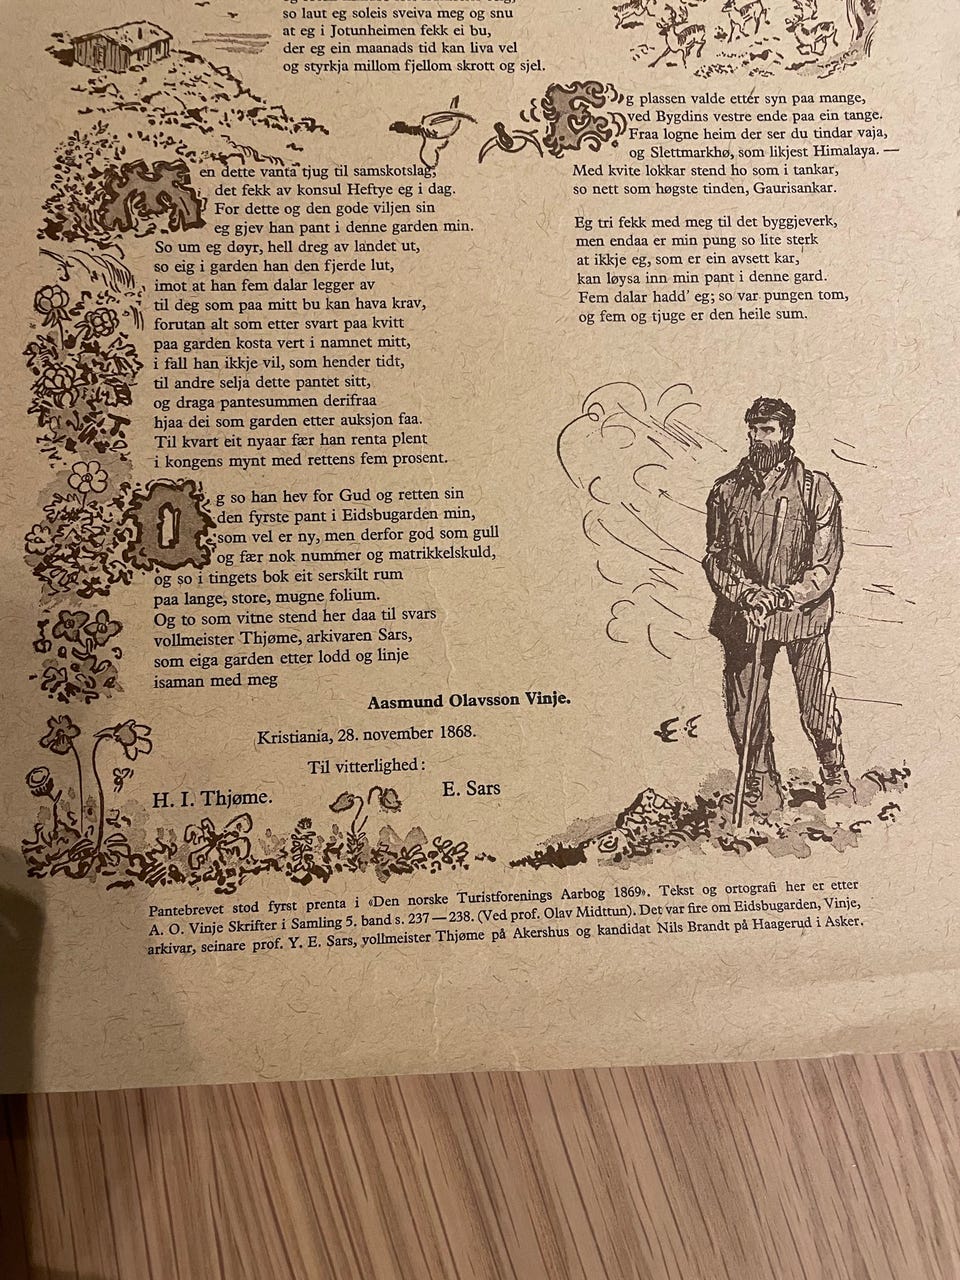 so laut eg soleis sveiva meg og snu
at eg i Jotunheimen fekk ei bu,
der eg ein maanads tid kan liva vel
og styrkja millom fjellom skrott og sjel.
Eg plassen valde etter syn paa mange,
ved Bygdins vestre ende paa ein tange.
Fraa logne heim der ser du tindar vaja,
og Slettmarkhø, som likjest Himalaya. —
Med kvite lokkar stend ho som i tankar,
so nett som høgste tinden, Gaurisankar.
Eg tri fekk med meg til det byggjeverk,
men endaa er min pung so lite sterk
at ikkje eg, som er ein avsett kar,
kan løysa inn min pant i denne gard.
Fem dalar hadd' eg; so var pungen tom,
og fem og tjuge er den heile sum.
Men dette vanta tjug til samskotslag,
det fekk av konsul Heftye eg i dag.
For dette og den gode viljen sin
eg gjev han pant i denne garden min.
So um eg døyr, hell dreg av landet ut,
so eig i garden han den fjerde lut,
imot at han fem dalar legger av
til deg som paa mitt bu kan hava krav,
forutan alt som etter svart paa kvitt
paa garden kosta vert i namnet mitt,
i fall han ikkje vil, som hender tidt,
til andre selja dette pantet sitt,
og draga pantesummen derifraa
hjaa dei som garden etter auksjon faa.
Til kvart eit nyaar fær han renta plent
i kongens mynt med rettens fem prosent.
Og so han hev for Gud og retten sin
den fyrste pant i Eidsbugarden min,
som vel er ny, men derfor god som gull
og fær nok nummer og matrikkelskuld,
og so i tingets bok eit serskilt rum
paa lange, store, mugne folium.
Og to som vitne stend her daa til svars
vollmeister Thjøme, arkivaren Sars,
som eiga garden etter lodd og linje
isaman med meg
Aasmund Olavsson Vinje.
Kristiania, 28. november 1868.
Til vitterlighed:
H. I. Thjøme. E. Sars
Pantebrevet stod fyrst prenta i «Den norske Turistforenings Aarbog 1869». Tekst og ortografi her er etter
A. O. Vinje Skrifter i Samling 5. band s. 237—238. (Ved prof. Olav Midttun). Det var fire om Eidsbugarden, Vinje,
arkivar, seinare prof. Y. E. Sars, vollmeister Thjøme på Akershus og kandidat Nils Brandt på Haagerud i Asker.